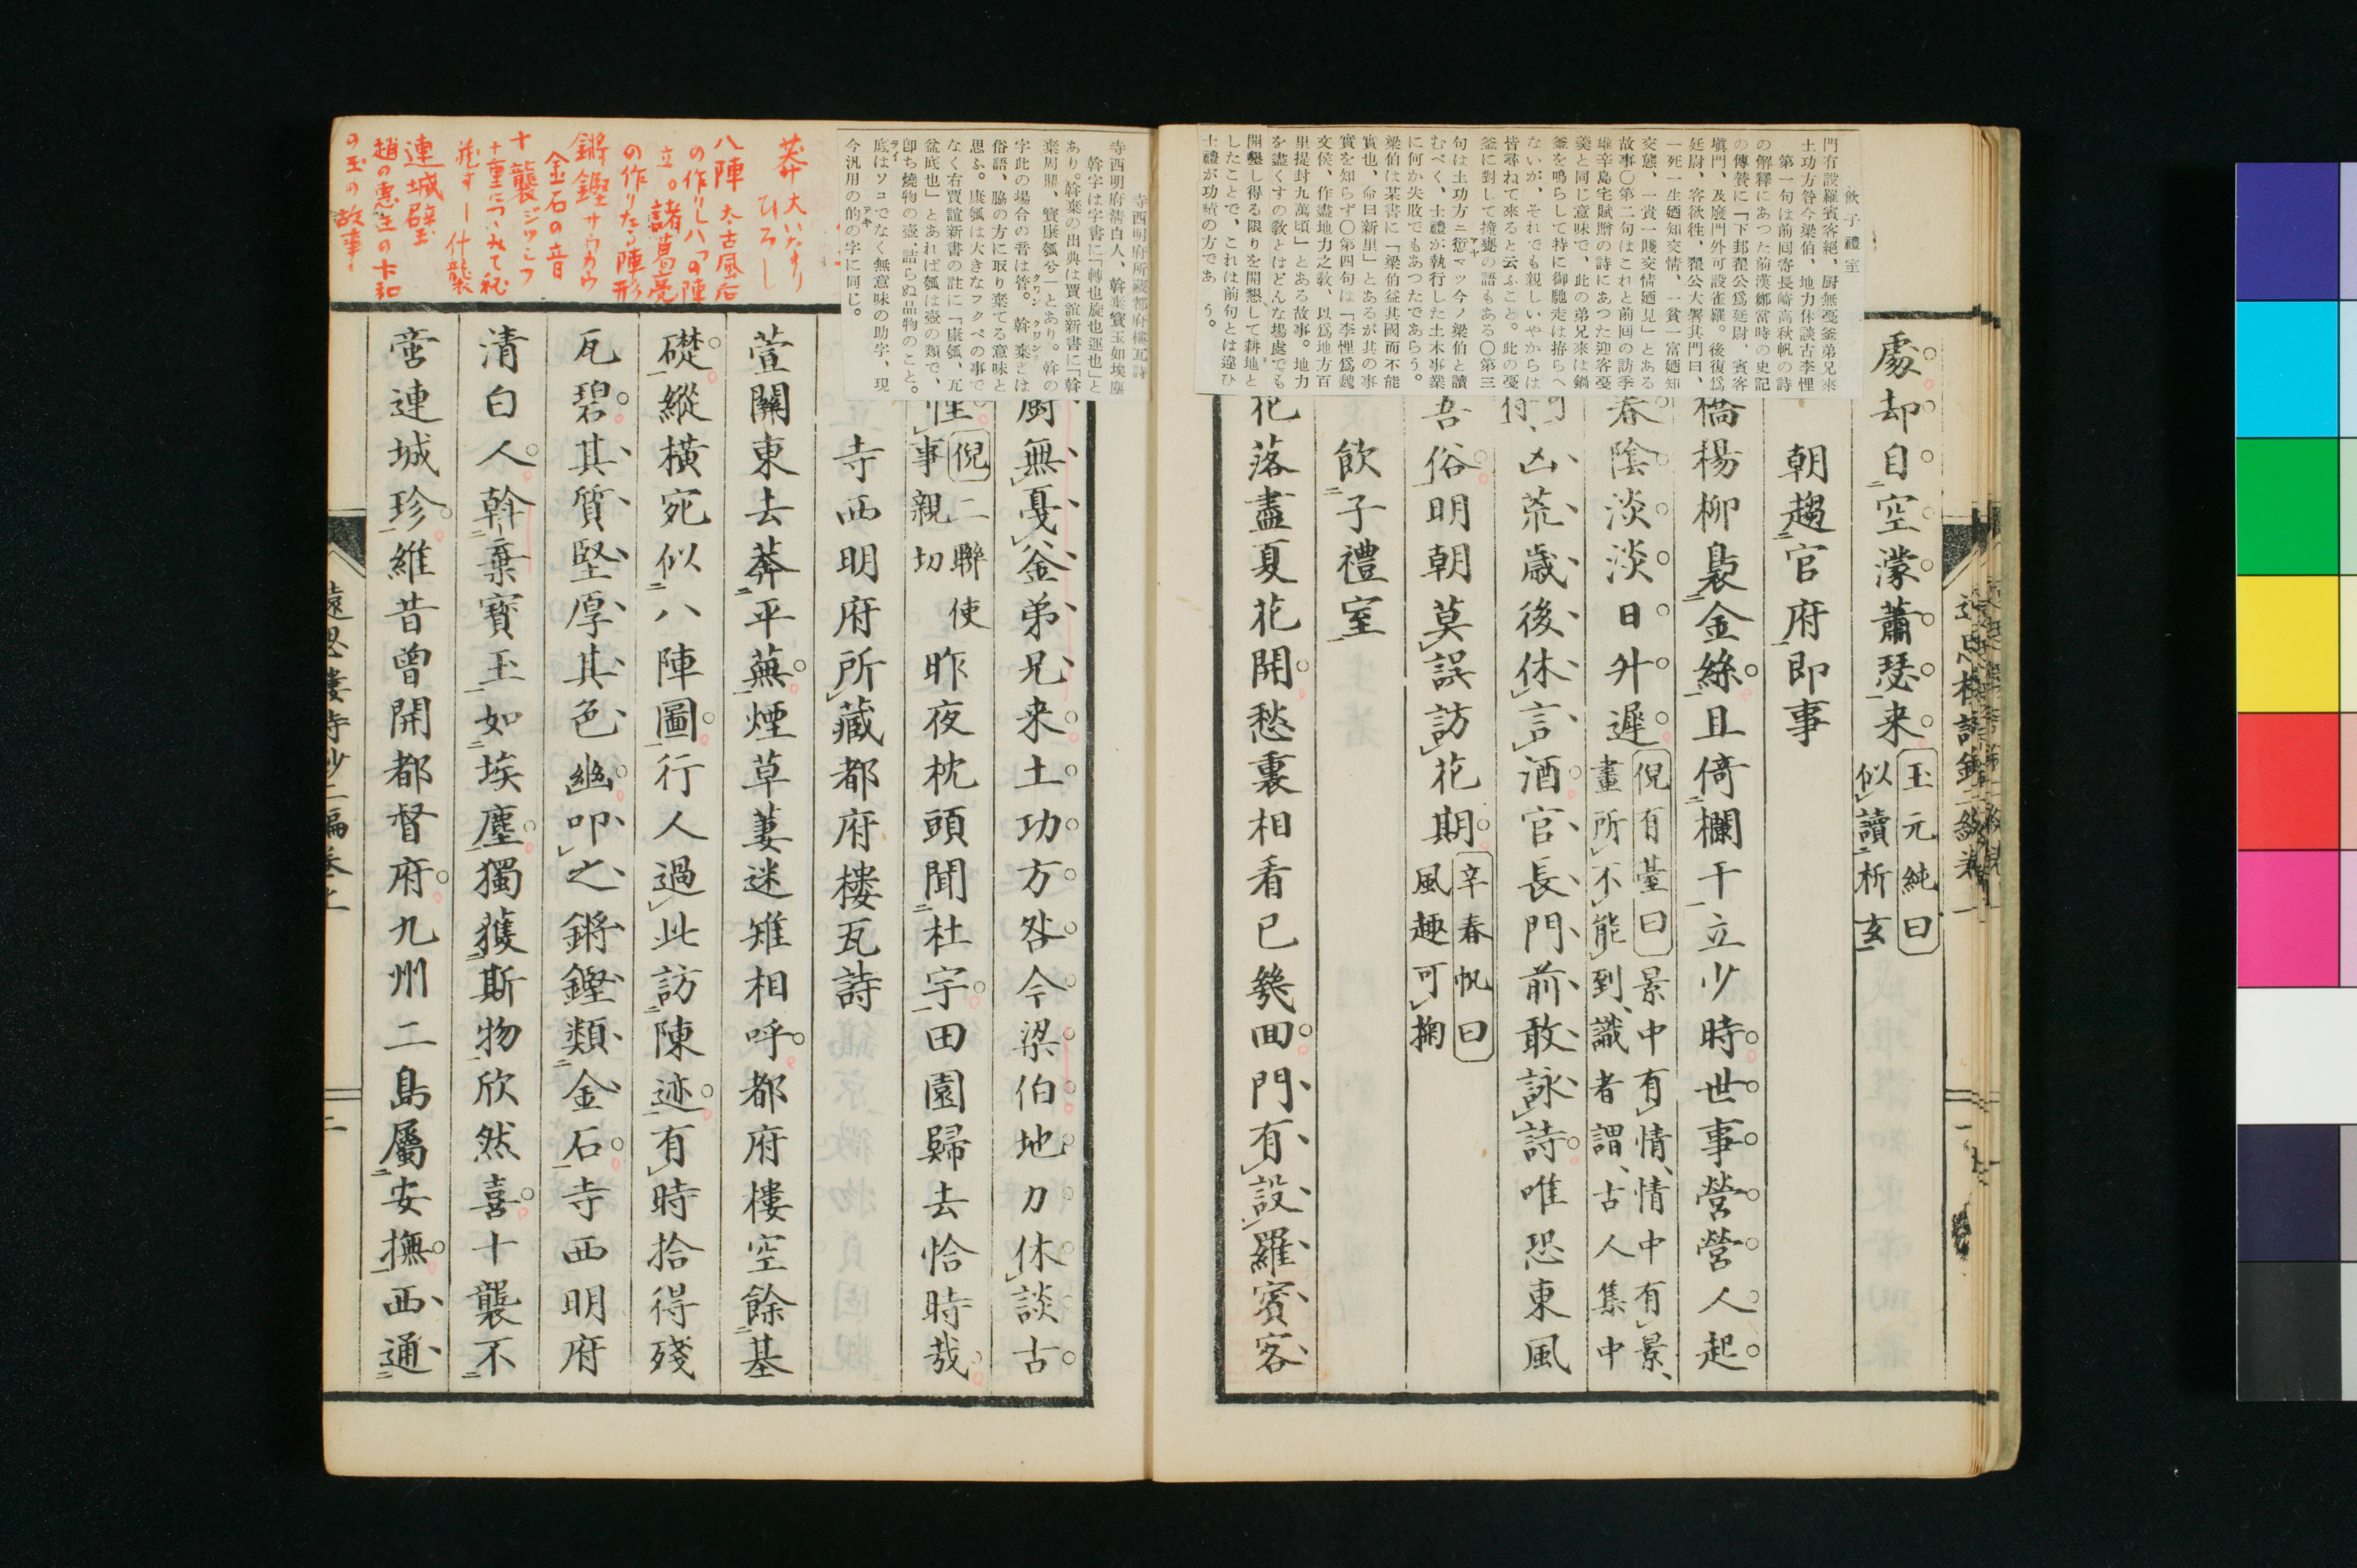 飲子禮室
門有設羅賓客絕、厨無戞釜弟兄來
土功方咎今梁伯、地力休談古李悝
第一句は前回寄長崎高秋帆の詩
の解釋にあつた前漢鄭當時の史記
の傳贊に「下邽翟公爲廷尉、賓客
塡門、及廢門外可設雀羅。後復爲
廷尉、客欲往、翟公大署其門曰、
一死一生廼知交情、一貧一富廼知
交態、一貴一賤交情廼見」とある
故事〇第二句はこれと前回の訪季
雄辛島宅賦贈の詩にあつた迎客戞
羹と同じ意味で、此の弟兄來は鍋
釜を鳴らして特に御馳走は拵らへ
ないが、それでも親しいやからは
皆尋ねて來ると云ふこと。此の戞
釜に對して撞甕の語もある〇第三
句は土功方ニ咎マツ今ノ梁伯と讀
むべく、士禮が執行した土木事業
に何か失敗でもあつたであらう。
梁伯は某書に「梁伯益其國而不能
實也、命曰新里」とあるが其の事
實を知らず〇第四句は「李悝爲魏
文侯、作盡地力之敎、以爲地方百
里提封九萬頃」とある故事。地力
を盡くすの敎とはどんな場處でも
開墾し得る限りを開懇して耕地と
したことで、これは前句とは違ひ
士禮が功績の方であ う。
處却自空濛蕭瑟来
玉元純曰
似讀析玄
朝趨官府即事
橋楊柳裊金絲且倚欄干立少時世事營營人起
春陰淡淡日升遲
倪有臺曰景中有情、情中有景、
畫所不能到、識者謂、古人集中
凶荒歳後休言酒官長門前敢詠詩唯恐東風
吾俗明朝莫誤訪花期
辛春帆曰
風趣可掬
飲子禮室
花落盡夏花開愁裏相看已幾回門有設羅賓客
寺西明府所藏都府樓瓦詩
寺西明府清白人、斡棄寶玉如埃塵
斡字は字書に「轉也旋也運也」と
あり。斡棄の出典は賈誼新書に「斡
棄周鼎、寶康瓠兮」とあり。斡の
字此の場合の音は管。斡棄とは
俗語、脇の方に取り棄てる意味と
思ふ。康瓠は大きなフクベの事で
なく右賈誼新書の註に「康瓠、瓦
盆底也」とあれば瓠は壺の類で、
卽ち燒物の壺、詰らぬ品物のこと。
底はソコでなく無意味の助字、現
今汎用の的の字に同じ。
厨無戞釜弟兄来土功方咎今梁伯地力休談古
悝
倪二聯使
事親切
昨夜枕頭聞杜宇田園歸去恰時哉
寺西明府所藏都府樓瓦詩
萱關東去莽平蕪煙草萋迷雉相呼都府樓空餘基
礎縱横宛似八陣圖行人過此訪陳迹有時拾得殘
瓦碧其質堅厚其色幽叩之鏘鏗類金石寺西明府
清白人斡棄寶玉如埃塵獨獲斯物欣然喜十襲不
啻連城珍維昔曾開都督府九州二島屬安撫西通
莽 大いなり
ひろし
八陣 太古風后
の作りし八つの陣
立。諸葛亮
の作りたる陣形
鏘鏗 サウカウ
金石の音
十襲 ジウシフ
十重につゝみて秘
藏す―什襲
連城璧玉
趙の惠王の卞和
の玉の故事
遠思樓詩鈔二編卷上
二